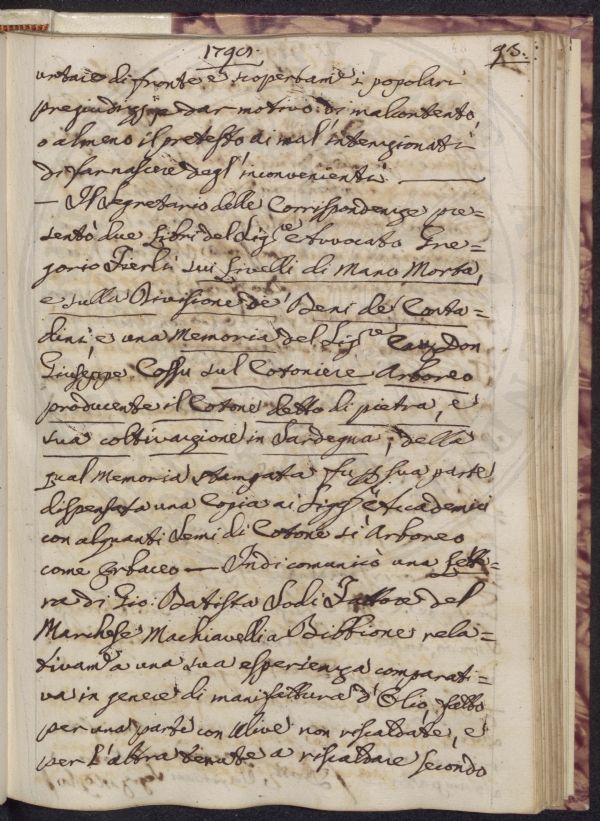 1790. 93.
urtare di fronte e scopertam:e i popolari
pregiudizzj e dar motivo di malcontento,
o almeno il pretesto ai mal' intenzionati
di far nascere degl' inconvenienti. ———
— Il Segretario delle Corrispondenze pre=
sentò due Libri del Sig:re Avvocato Gre=
gorio Fierli sui Livelli di Mano Morta,
e sulla Divisione de' Beni de' Conta=
dini, e una Memoria del Sig:re Cav: Don
Giuseppe Cossu sul Cotoniere Arboreo
producente il Cotone detto di pietra, e
sua coltivazione in Sardegna; della
qual Memoria stampata fu p: sua parte
dispensata una Copia ai Sigg:ri Accademici
con alquanti Semi di Cotone sì Arboreo
come Erbaceo — Indi comunicò una Lette=
ra di Gio: Batista Sodi Fattore del
Marchese Machiavelli a Bibbione rela=
tivam:e a una sua esperienza comparati=
va in genere di manifattura d'Olio, fatto
per una parte con Ulive non riscaldate, e
per l'altra tenute a riscaldare secondo